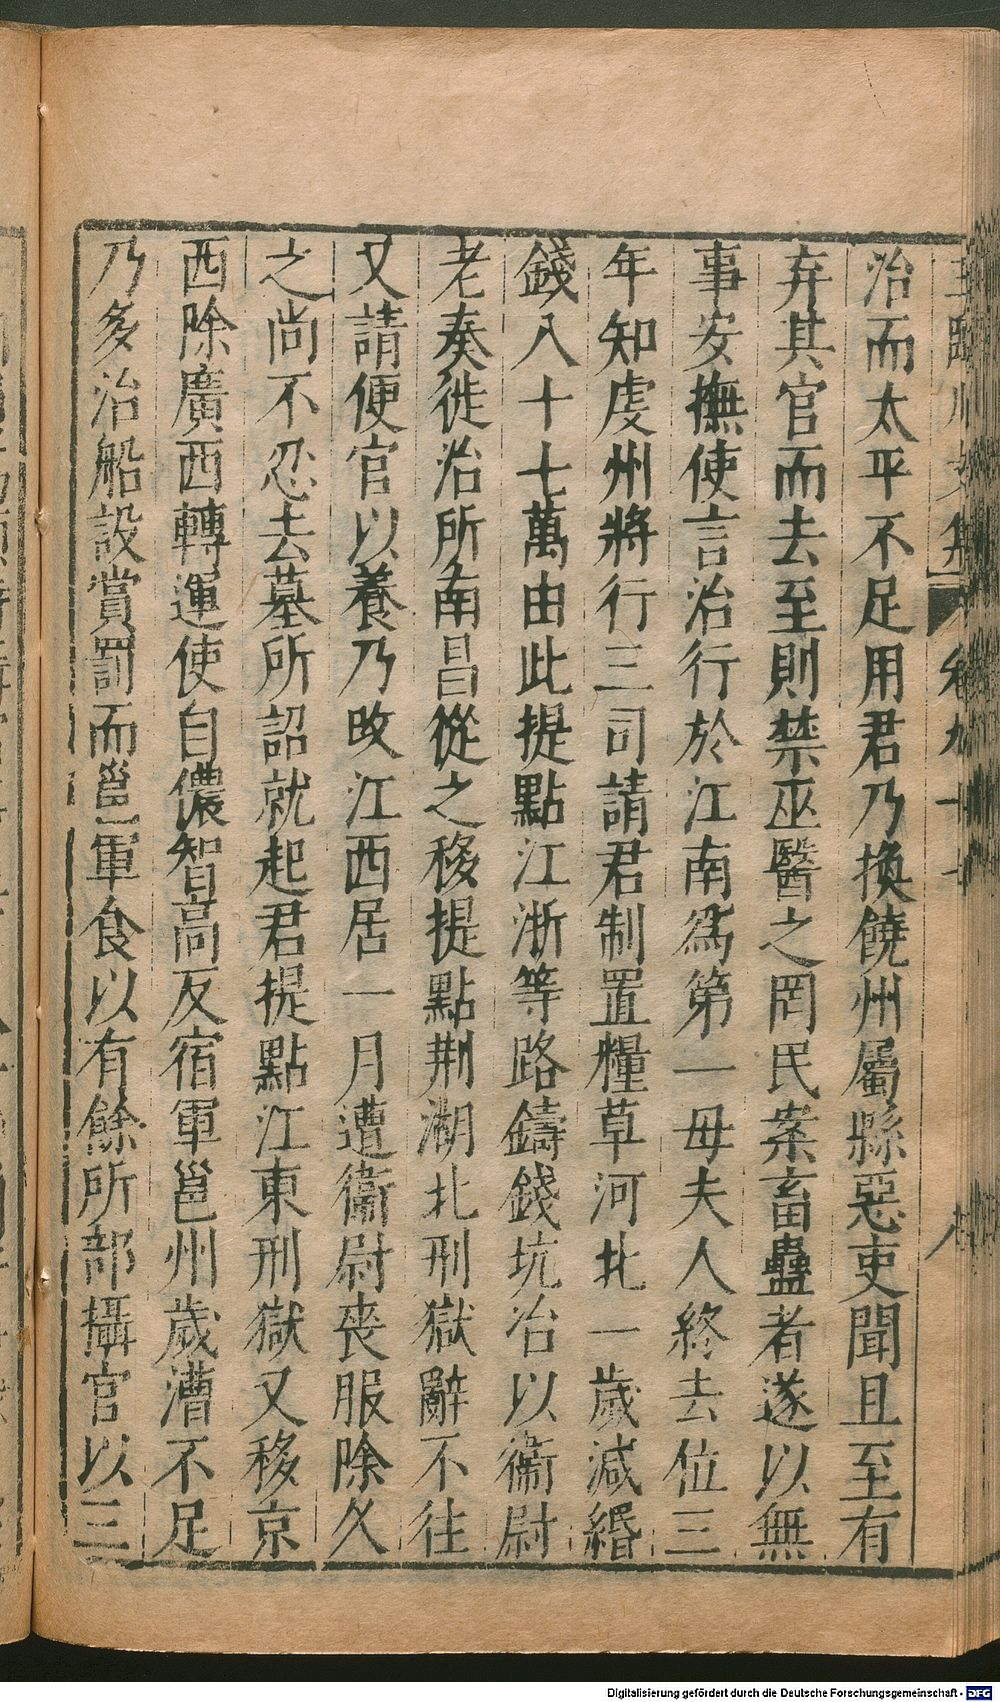 治而太平不足用君乃換饒州屬縣惡吏聞且至有
弃其官而去至則禁巫醫之罔民案畜蠱者遂以無
事安撫使言治行於江南爲第一毋夫人終去位三
年知虔州將行三司請君制置糧草河北一歲減緡
錢八十七萬由此提點江浙等路鑄錢坑冶以衞尉
老奏徙治所南昌從之移提點荆湖北刑獄辭不往
又請便官以養乃攺江西居一月遭衞尉喪服除久
之尚不忍去墓所詔就起君提點江東刑獄又移京
西除廣西轉運使自儂智高反宿軍邕州歲漕不足
乃多治船設賞罰而邕軍食以有餘所部攝官以三
Digitalisierung gefördert durch die Deutsche Forschungsgemeinschaft - DFG